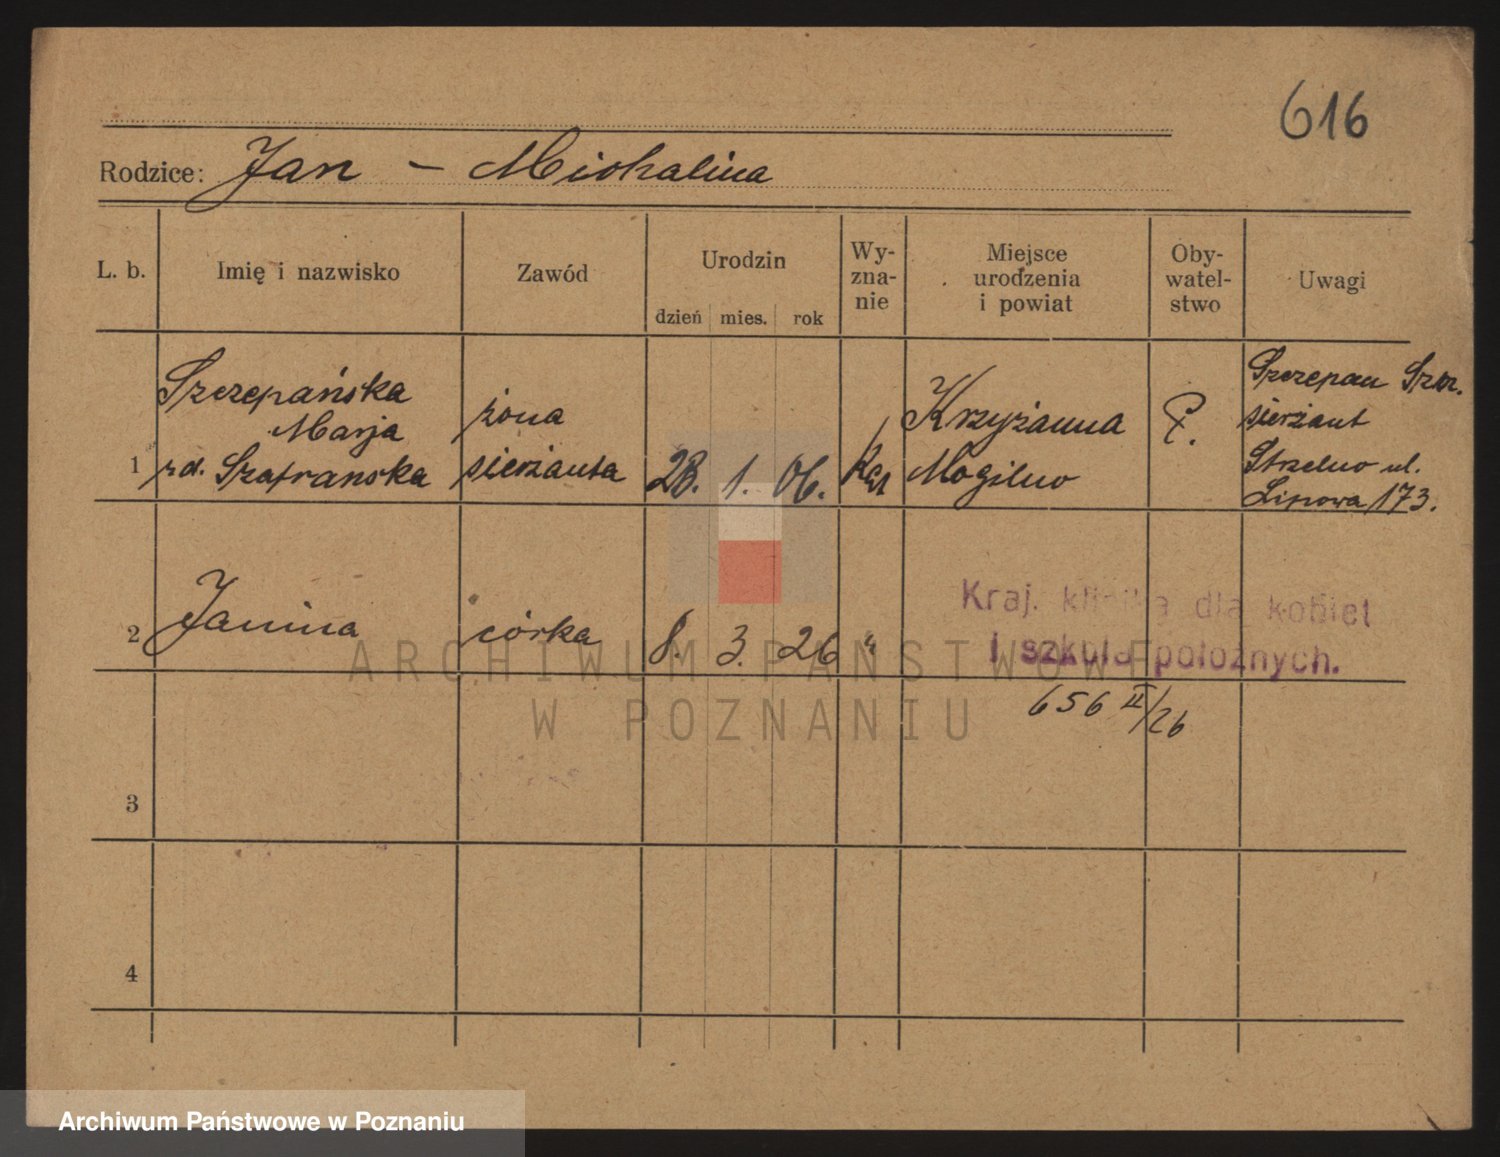 616
Rodzice: Jan – Michalina
L. b. Imię i nazwisko Zawód Urodzin dzień mies. rok Wy-zna-nie Miejsce urodzenia i powiat Oby-watel-stwo Uwagi
Szczepańska żona Krzyżanna P. Szczepan Szcz.
Marja sierżant
1 rd. Szafranska sierżanta 28. 1. 06. Kat Mogilno Strzelno ul.
Lipowa 173.
Kraj. klinika dla kobiet
2 Janina córka 8. 3. 26 " i szkoła położnych.
656 II/26
3
4
ARCHIWUM PAŃSTWOWE
W POZNANIU
Archiwum Państwowe w Poznaniu